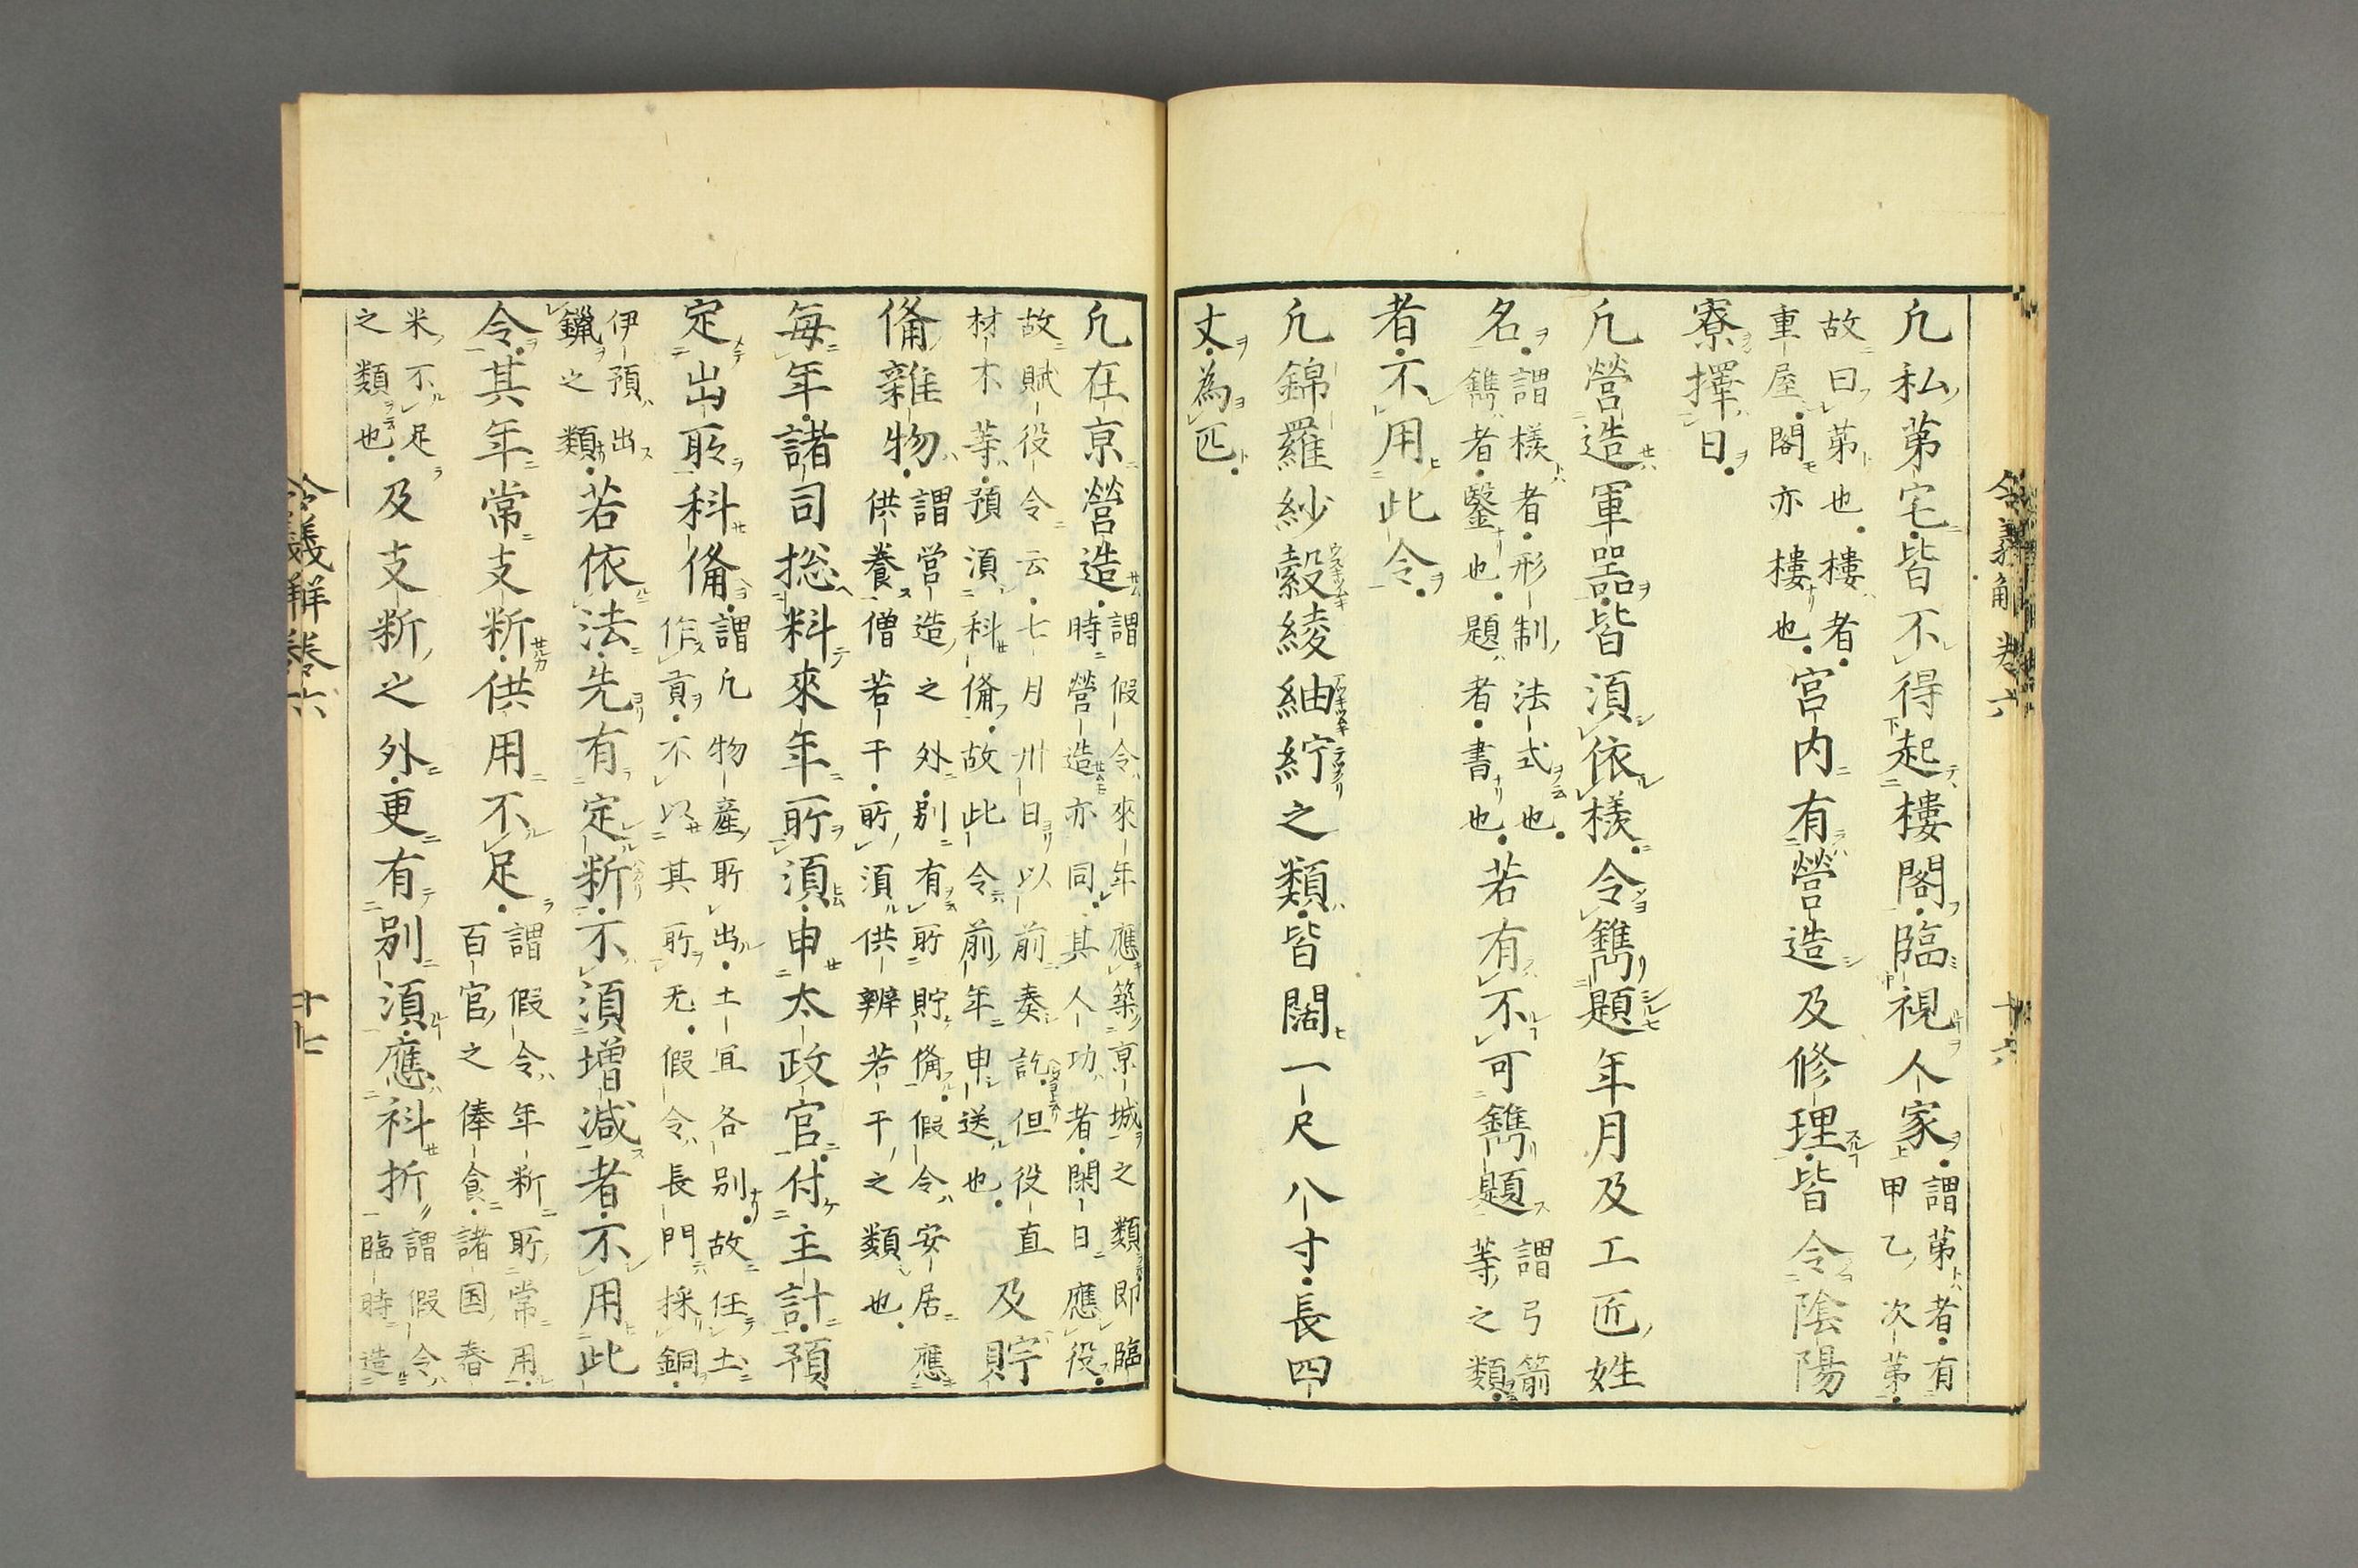 凢私第宅皆不得起樓閣臨視人家謂第者有
甲乙次第
故曰第也樓者
重屋閣亦樓也宮内有營造及修理皆令陰陽
寮擇日
凢營造軍器皆湏依様令鐫題年月及工匠姓
名謂様者形制法式也
鐫者鑿也題者書也若有不可鐫題謂弓箭
等之類
者不用此令
凢錦羅紗縠綾紬紵之類皆闊一尺八寸長四
丈為匹
凢在京營造謂假令來年應築京城之類即臨
時營造亦同其人功者閑日應役
故賦役令云七月卅日以前奏訖但役直
材木等預湏科備故此令前年申送也及貯
備雜物謂営造之外別有所貯備假令安居應
供養僧若干所湏供辨若干之類也
毎年諸司捴料來年所湏申太政官付主計預
定出所科備謂凢物産所出土冝各別故任土
作貢不以其所无假令長門採銅
伊預出
鑞之類若依法先有定料不湏増減者不用此
令其年常支料供用不足謂假令年料所常用
百官之俸食諸国舂
米不足
之類也及支料之外更有別湏應科折謂假令
臨時造
令義解卷六 十六
令義解卷六 十七